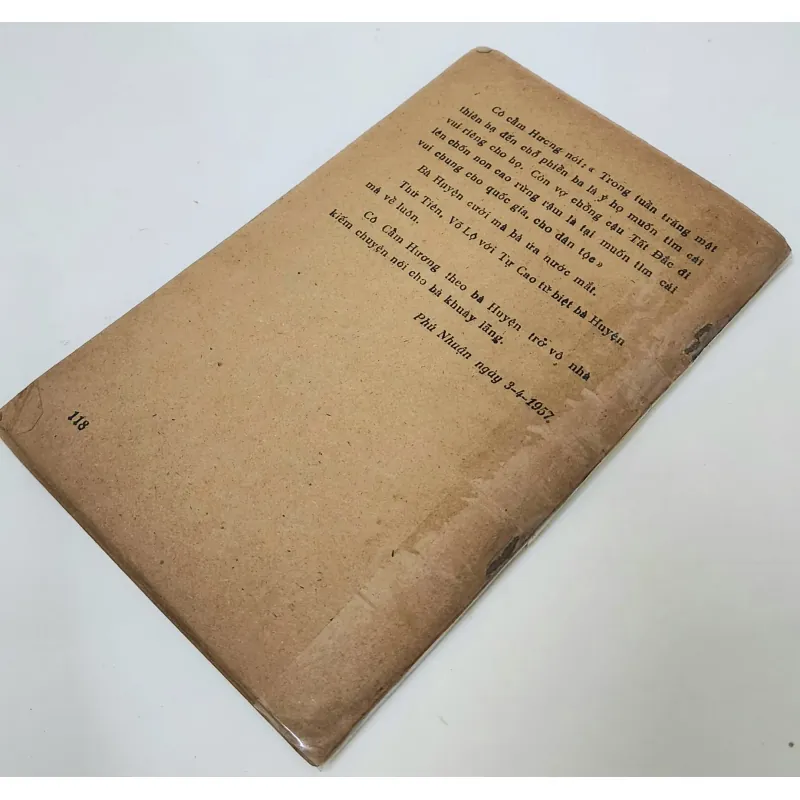 Cô cẩm Hương nói: « Trong tuần trăng mật
thiên hạ đến chỗ phiền ba là ý họ muốn tìm cái
vui riêng cho họ. Còn vợ chồng cậu Tất Đắc đi
lên chốn non cao rừng rậm là tại muốn tìm cái
vui chung cho quốc gia, cho dân tộc»
Bà Huyện cười mà bà ứa nước mắt.
Thử Tiên, Võ Lộ với Tự Cao từ biệt bà Huyện
mà về luôn.
Cô Cẩm Hương theo bà Huyện trở vô nhà
kiếm chuyện nói cho bà khuây lãng.
Phú Nhuận ngày 3-4-1957.
118